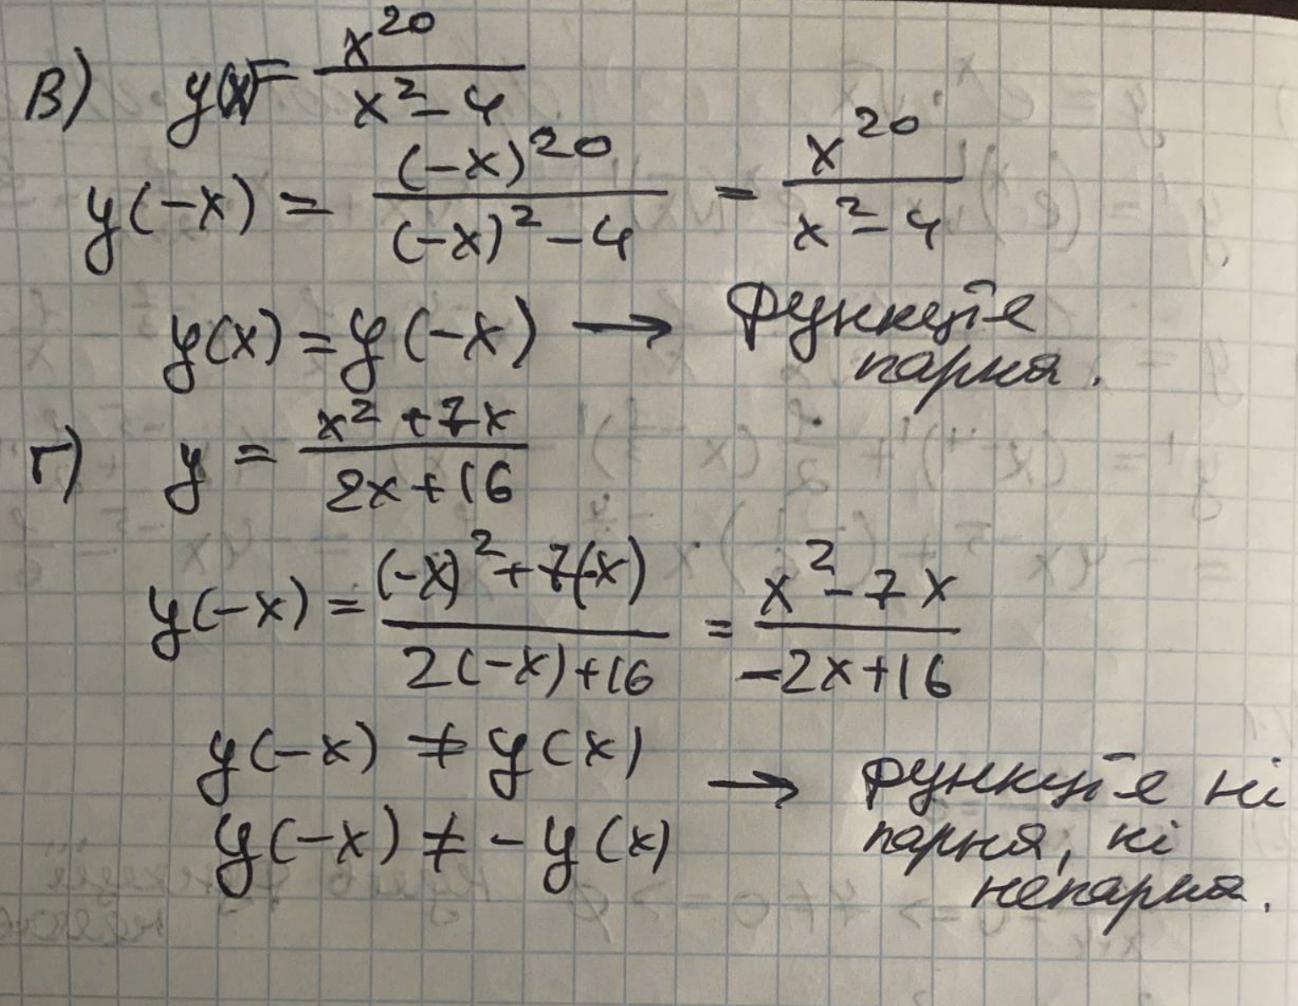 в) y(x) = x^20 / (x^2 - 4)
y(-x) = (-x)^20 / ((-x)^2 - 4) = x^20 / (x^2 - 4)
y(x) = y(-x) → Функція
парна.
г) y = (x^2 + 7x) / (2x + 16)
y(-x) = ((-x)^2 + 7(-x)) / (2(-x) + 16) = (x^2 - 7x) / (-2x + 16)
y(-x) ≠ y(x)
y(-x) ≠ -y(x) → функція ні
парня, ні
непарна.